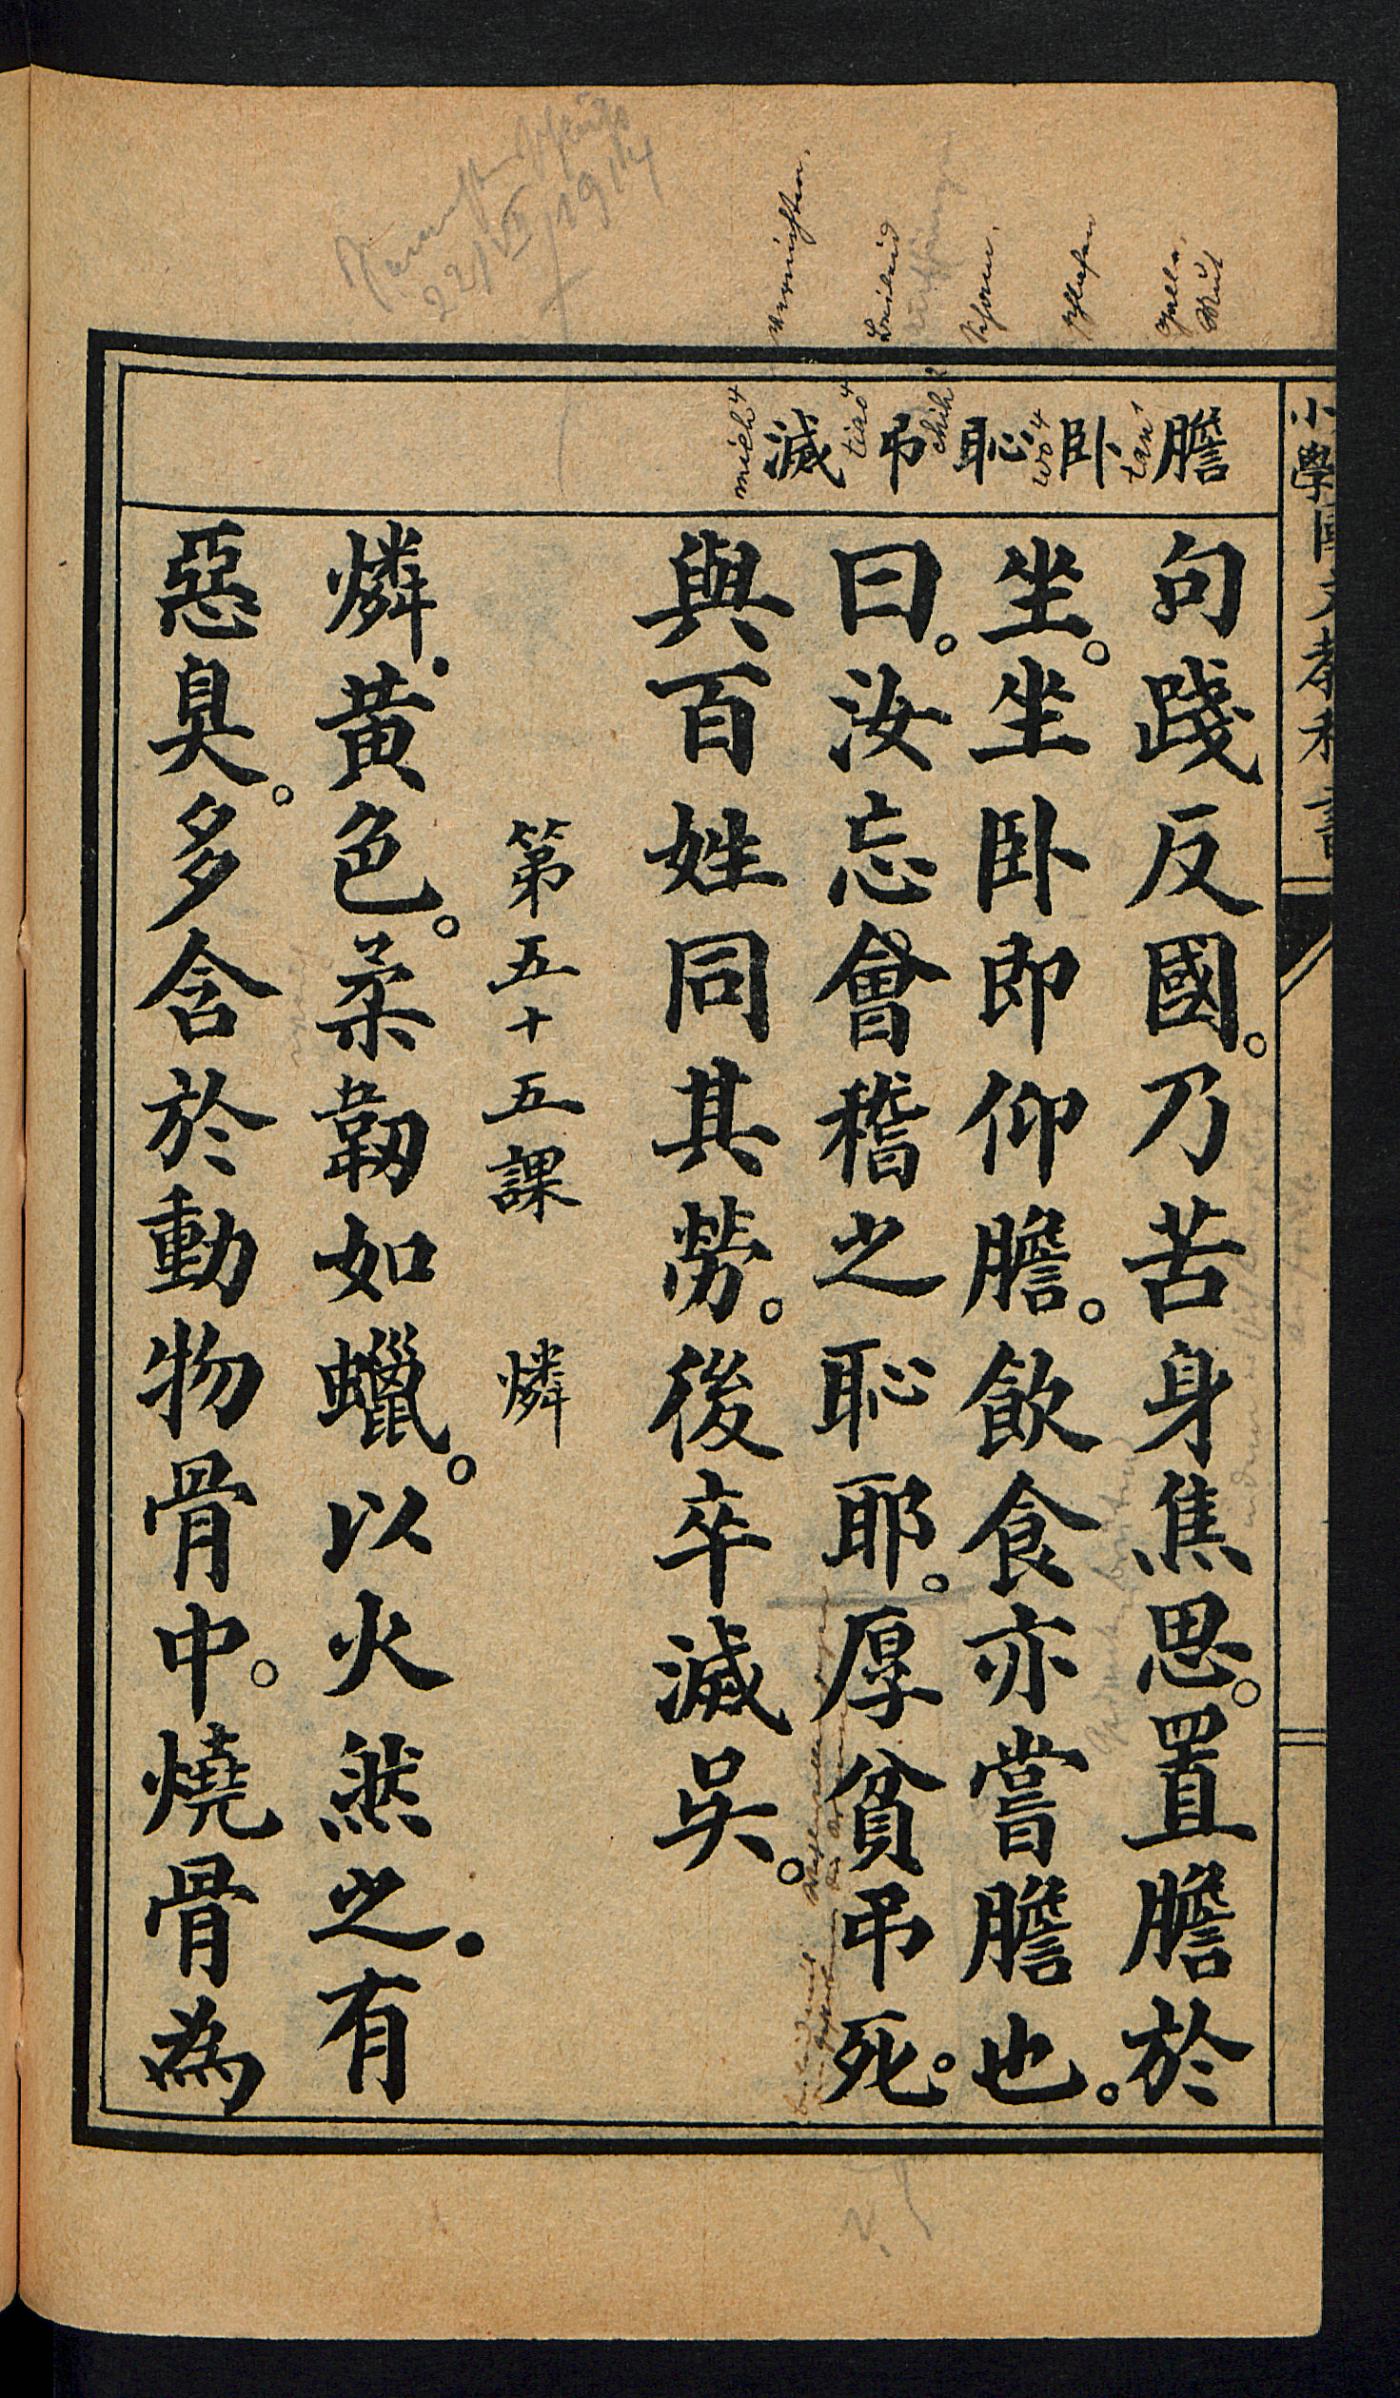 小學國文教科書
膽
卧
恥
弔
滅
tan¹
wo⁴
chih³
tiao⁴
mieh⁴
Galle. Mut
schlafen
vernichten.
22/VI 1914
句踐反國。乃苦身焦思。置膽於
坐。坐卧即仰膽。飲食亦嘗膽也。
曰。汝忘會稽之恥耶。厚貧弔死。
與百姓同其勞。後卒滅吳。
第五十五課 燐
燐.黃色。柔韌如蠟。以火然之.有
惡臭。多含於動物骨中。燒骨為